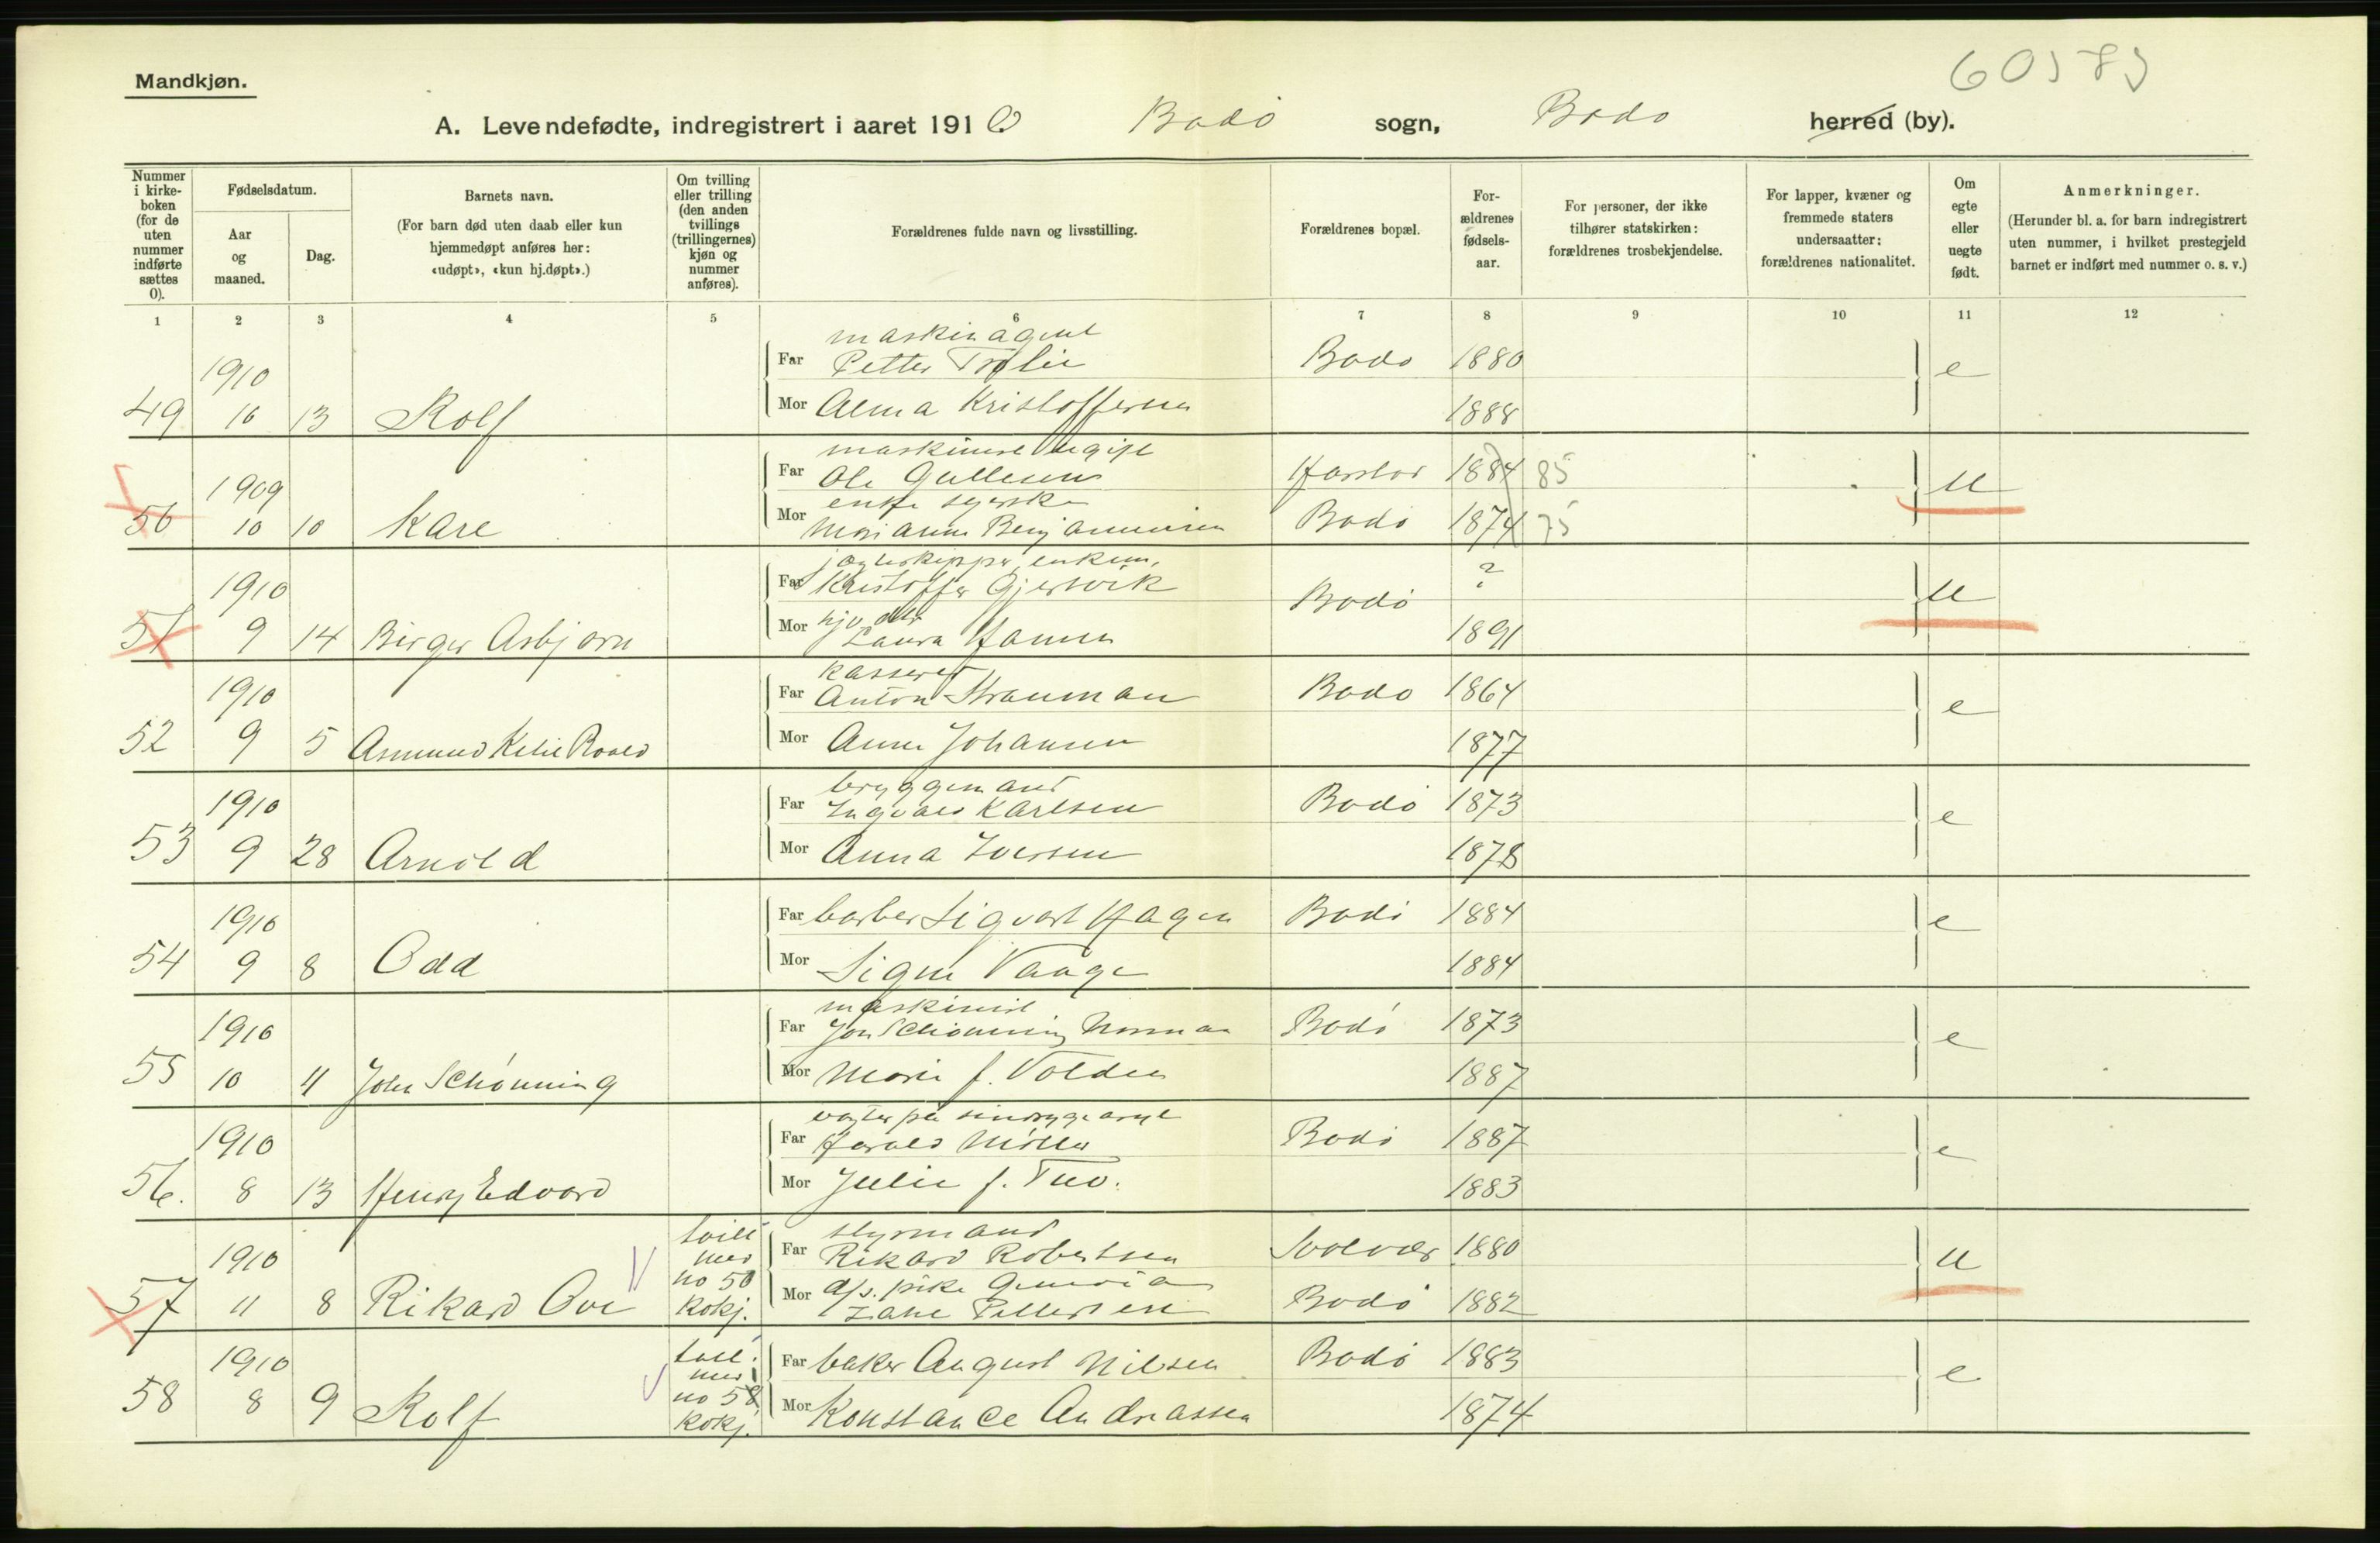 Mandkjøn.
A. Levendefødte, indregistrert i aaret 1910 Bodø sogn, Bodø herred (by).
Nummer i kirke-boken (for de uten nummer indførte sættes 0).
Fødselsdatum.
Aar og maaned.
Dag.
Barnets navn.
(For barn død uten daab eller kun hjemmedøpt anføres her: «udøpt», «kun hj.døpt».)
Om tvilling eller trilling (den anden tvillings (trillingernes) kjøn og nummer anføres).
Forældrenes fulde navn og livsstilling.
Forældrenes bopæl.
For-ældrenes fødsels-aar.
For personer, der ikke tilhører statskirken: forældrenes trosbekjendelse.
For lapper, kvæner og fremmede staters undersaatter: forældrenes nationalitet.
Om egte eller uegte født.
Anmerkninger.
(Herunder bl. a. for barn indregistrert uten nummer, i hvilket prestegjeld barnet er indført med nummer o. s. v.)
1 2 3 4 5 6 7 8 9 10 11 12
maskinagent
1910 Far Petter Bodø 1880 e
49 10 13 Rolf Mor Alma Kristoffersen 1888
maskinist ugift
1909 Far Ole Gullesen Harstad 1884 85 u
enke syerske
50 10 10 Kåre Mor Marianne Benjaminsen Bodø 1874 75
jægteskipper, enkem.
1910 Far Kristoffer Gjersvik Bodø ? u
51 9 14 Birger Asbjørn Mor Laura Hansen 1891
kasserer
1910 Far Anton Strauman Bodø 1864 e
52 9 5 Asmund Ketil Roald Mor Anna Johansen 1877
bryggemand
1910 Far Ingvald Karlsen Bodø 1873 e
53 9 28 Arnold Mor Anna Iversen 1878
1910 Far barber Sigvart Hagen Bodø 1884 e
54 9 8 Odd Mor Signe Vaage 1884
maskinist
1910 Far Jon Schønning Norman Bodø 1873 e
55 10 11 John Schønning Mor Marie f. Volden 1887
vogter på sindssygeasyl
1910 Far Harald Møller Bodø 1887 e
56. 8 13 Henry Edvard Mor Julie f. 1883
tvill styrmand
1910 med Far Rikard Robertsen Svolvær 1880 u
no 50 Mor pike
57 11 8 Rikard Ove kvkj. Pettersen Bodø 1882
tvill.
1910 med Far baker August Nilsen Bodø 1883 e
no 58
58 8 9 Rolf kvkj. Mor Konstance Andreassen 1874